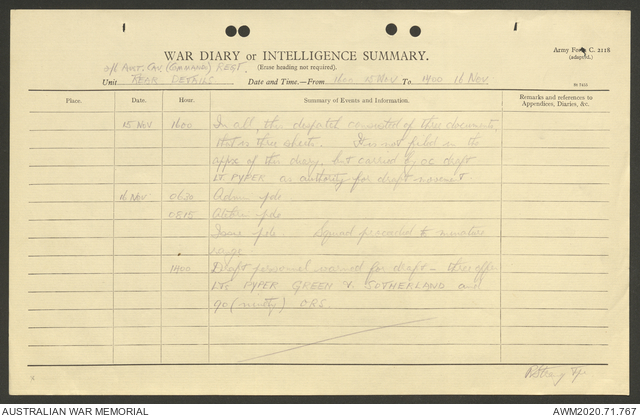 Army Form C. 2118
(adapted.)
WAR DIARY or INTELLIGENCE SUMMARY.
(Erase heading not required.)
2/6 AUST. CAV (COMMANDO) REGT.
Unit REAR DETAILS Date and Time.—From 1600 15 NOV To 1400 16 NOV.
Place. Date. Hour. Summary of Events and Information. Remarks and references to Appendices, Diaries, &c.
15 NOV 1600 In all, this despatch consisted of three documents,
that is three sheets. It is not filed in the
appx of this diary, but carried by OC draft
LT PYPER as authority for draft movement.
16 NOV 0630 Admin pde
0815 pde
pde Squad proceeded to miniature
range
1400 Draft personnel warned for draft - three offrs
LTS PYPER GREEN & SUTHERLAND and
90 (ninety) ORS.
AUSTRALIAN WAR MEMORIAL
AWM2020.71.767